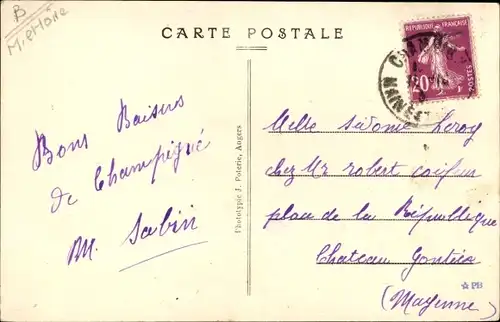 B
Mi Hône
CARTE POSTALE
REPUBLIQUE FRANCAISE
20
POSTES
MAINE
Bons Baisers
de Champigné
M. Sabin
Phototypie J. Poterie, Angers
Melle Sidonie Leroy
chez Mr robert coifeur
place de la République
Chateau Gontier
PB
(Mayenne)